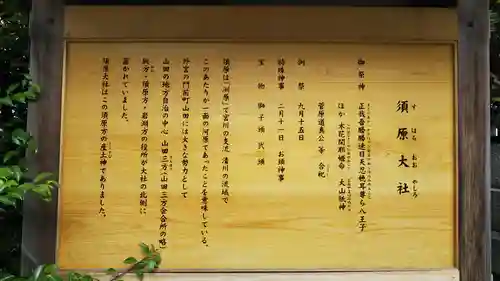 すはらおおやしろ
須原大社
御祭神 正哉吾勝勝速日天忍穂耳尊ら八王子
ほか 木花開耶姫命 大山祇神
菅原道真公等 合祀
例祭 九月十五日
特殊神事 二月十一日 お頭神事
宝物 御子頭弐頭
須原は「洲原」で宮川の支流 清川の流域で
このあたりが一面の河原であったことを意味している。
外宮の門前町山田には大きな勢力として
山田の地方自治の中心 山田三方(山田三方会合所の略)
坂方・須原方・岩渕方の役所が大社の北側に
置かれていました。
須原大社はこの須原方の産土神でありました。